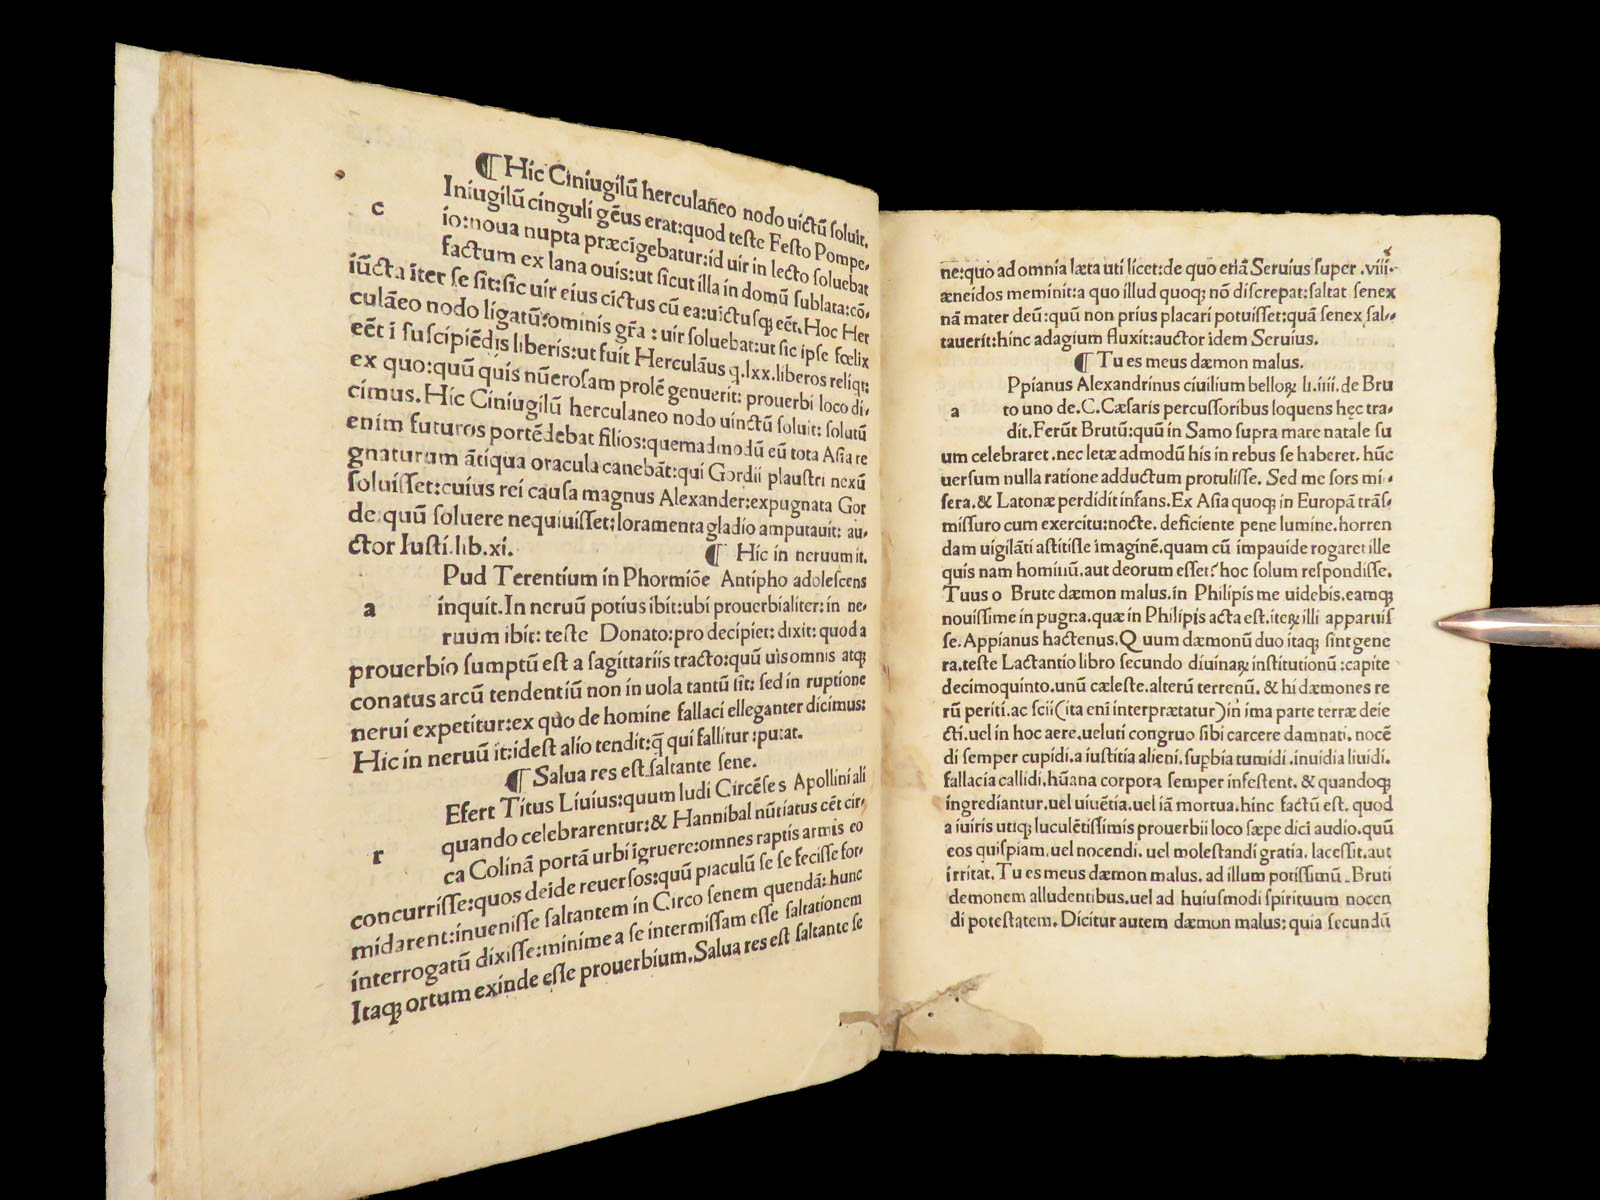 ¶ Hic Ciniugilū herculaneo nodo uictū ſoluit.
c Iniugilū cinguli gēus erat:quod teſte Feſto Pompe,
io:noua nupta præcīgebatur:id uir in lecto ſoluebat
factum ex lana ouis:ut ſicut illa in domū ſublata:cō,
iūcta iter ſe ſit:ſic uir eius cictus cū ea:uictuſqꝫ eēt.Hoc Her
culāeo nodo ligatū:ominis gr̄a : uir ſoluebat:ut ſic ipſe fœlix
eēt ī ſuſcipiēdis liberis:ut fuit Herculāus q.lxx.liberos reliqt:
ex quo:quū quis nūeroſam prolē genuerit: prouerbi loco di,
cimus.Hic Ciniugilū herculaneo nodo uinctū ſoluit: ſolutū
enim futuros portēdebat filios:quemadmodū eū tota Aſia re
gnaturum ātiqua oracula canebāt:qui Gordii plauſtri nexū
ſoluiſſet:cuius rei cauſa magnus Alexander:expugnata Gor
de:quū ſoluere nequiuiſſet:loramenta gladio amputauit: au,
ctor Iuſti.lib.xi.
¶ Hic in neruum it.
Pud Terentium in Phormiōe Antipho adoleſcens
a inquit.In neruū potius ibit:ubi prouerbialiter:in ne,
ruum ibit: teſte Donato:pro decipiet: dixit: quod a
prouerbio ſumptū eſt a ſagittariis tracto:quū uis omnis atqꝫ
conatus arcū tendentiū non in uola tantū ſit: ſed in ruptione
nerui expetitur:ex quo de homine fallaci elleganter dicimus:
Hic in neruū it:ideſt alio tendit:q̄ qui fallitur :putat.
¶ Salua res eſt ſaltante ſene.
Efert Titus Liuius:quum ludi Circēſes Apollini ali
r quando celebrarentur:& Hannibal nūtiatus eēt cir,
ca Colinā portā urbi īgruere:omnes raptis armis eo
concurriſſe:quos deīde reuerſos:quū piaculū ſe ſe feciſſe for,
midarent:inueniſſe ſaltantem in Circo ſenem quendā: hunc
interrogatū dixiſſe:minime a ſe intermiſſam eſſe ſaltationem
Itaqꝫ ortum exinde eſſe prouerbium.Salua res eſt ſaltante ſe
ne:quo ad omnia læta uti licet:de quo etiā Seruius ſuper .viii.
æneidos meminit:a quo illud quoqꝫ nō diſcrepat:ſaltat ſenex
nā mater deū:quū non prius placari potuiſſet:quā ſenex ſal,
tauerit:hinc adagium fluxit:auctor idem Seruius.
¶ Tu es meus dæmon malus.
Ppianus Alexandrinus ciuilium belloꝝ li.iiii.de Bru
a to uno de.C.Cæſaris percuſſoribus loquens hęc tra,
dit.Ferūt Brutū:quū in Samo ſupra mare natale ſu
um celebraret.nec letæ admodū his in rebus ſe haberet. hūc
uerſum nulla ratione adductum protuliſſe. Sed me ſors mi ,
ſera.& Latonæ perdidit infans.Ex Aſia quoqꝫ in Europā trāſ,
miſſuro cum exercitu:nocte.deficiente pene lumine.horren
dam uigilāti aſtitiſſe imaginē.quam cū impauide rogaret ille
quis nam hominū.aut deorum eſſet?hoc ſolum reſpondiſſe.
Tuus o Brute dæmon malus.in Philipis me uidebis.eamqꝫ
nouiſſime in pugna.quæ in Philipis acta eſt.iteꝝ illi apparuiſ
ſe.Appianus hactenus.Quum dæmonū duo itaqꝫ ſint gene
ra.teſte Lactantio libro ſecundo diuinaꝝ inſtitutionū :capite
decimoquinto.unū cæleſte.alterū terrenū. & hi dæmones re
rū periti.ac ſcii(ita enī interpræta​tur)in ima parte terræ deie
cti.uel in hoc aere.ueluti congruo ſibi carcere damnati. nocē
di ſemper cupidi.a iuſtitia alieni.ſupbia tumidi .inuidia liuidi.
fallacia callidi.hūana corpora ſemper infeſtent. & quandoqꝫ
ingrediantur.uel uiuētia.uel iā mortua.hinc factū eſt. quod
a iuiris utiqꝫ luculētiſſimis prouerbii loco ſæpe dici audio.quū
eos quiſpiam.uel nocendi. uel moleſtandi gratia. laceſſit.aut
irritat.Tu es meus dæmon malus. ad illum potiſſimū Bruti
demonem alludentibus.uel ad huiuſmodi ſpirituum nocen
di poteſtatem. Dicitur autem dæmon malus: quia ſecundū